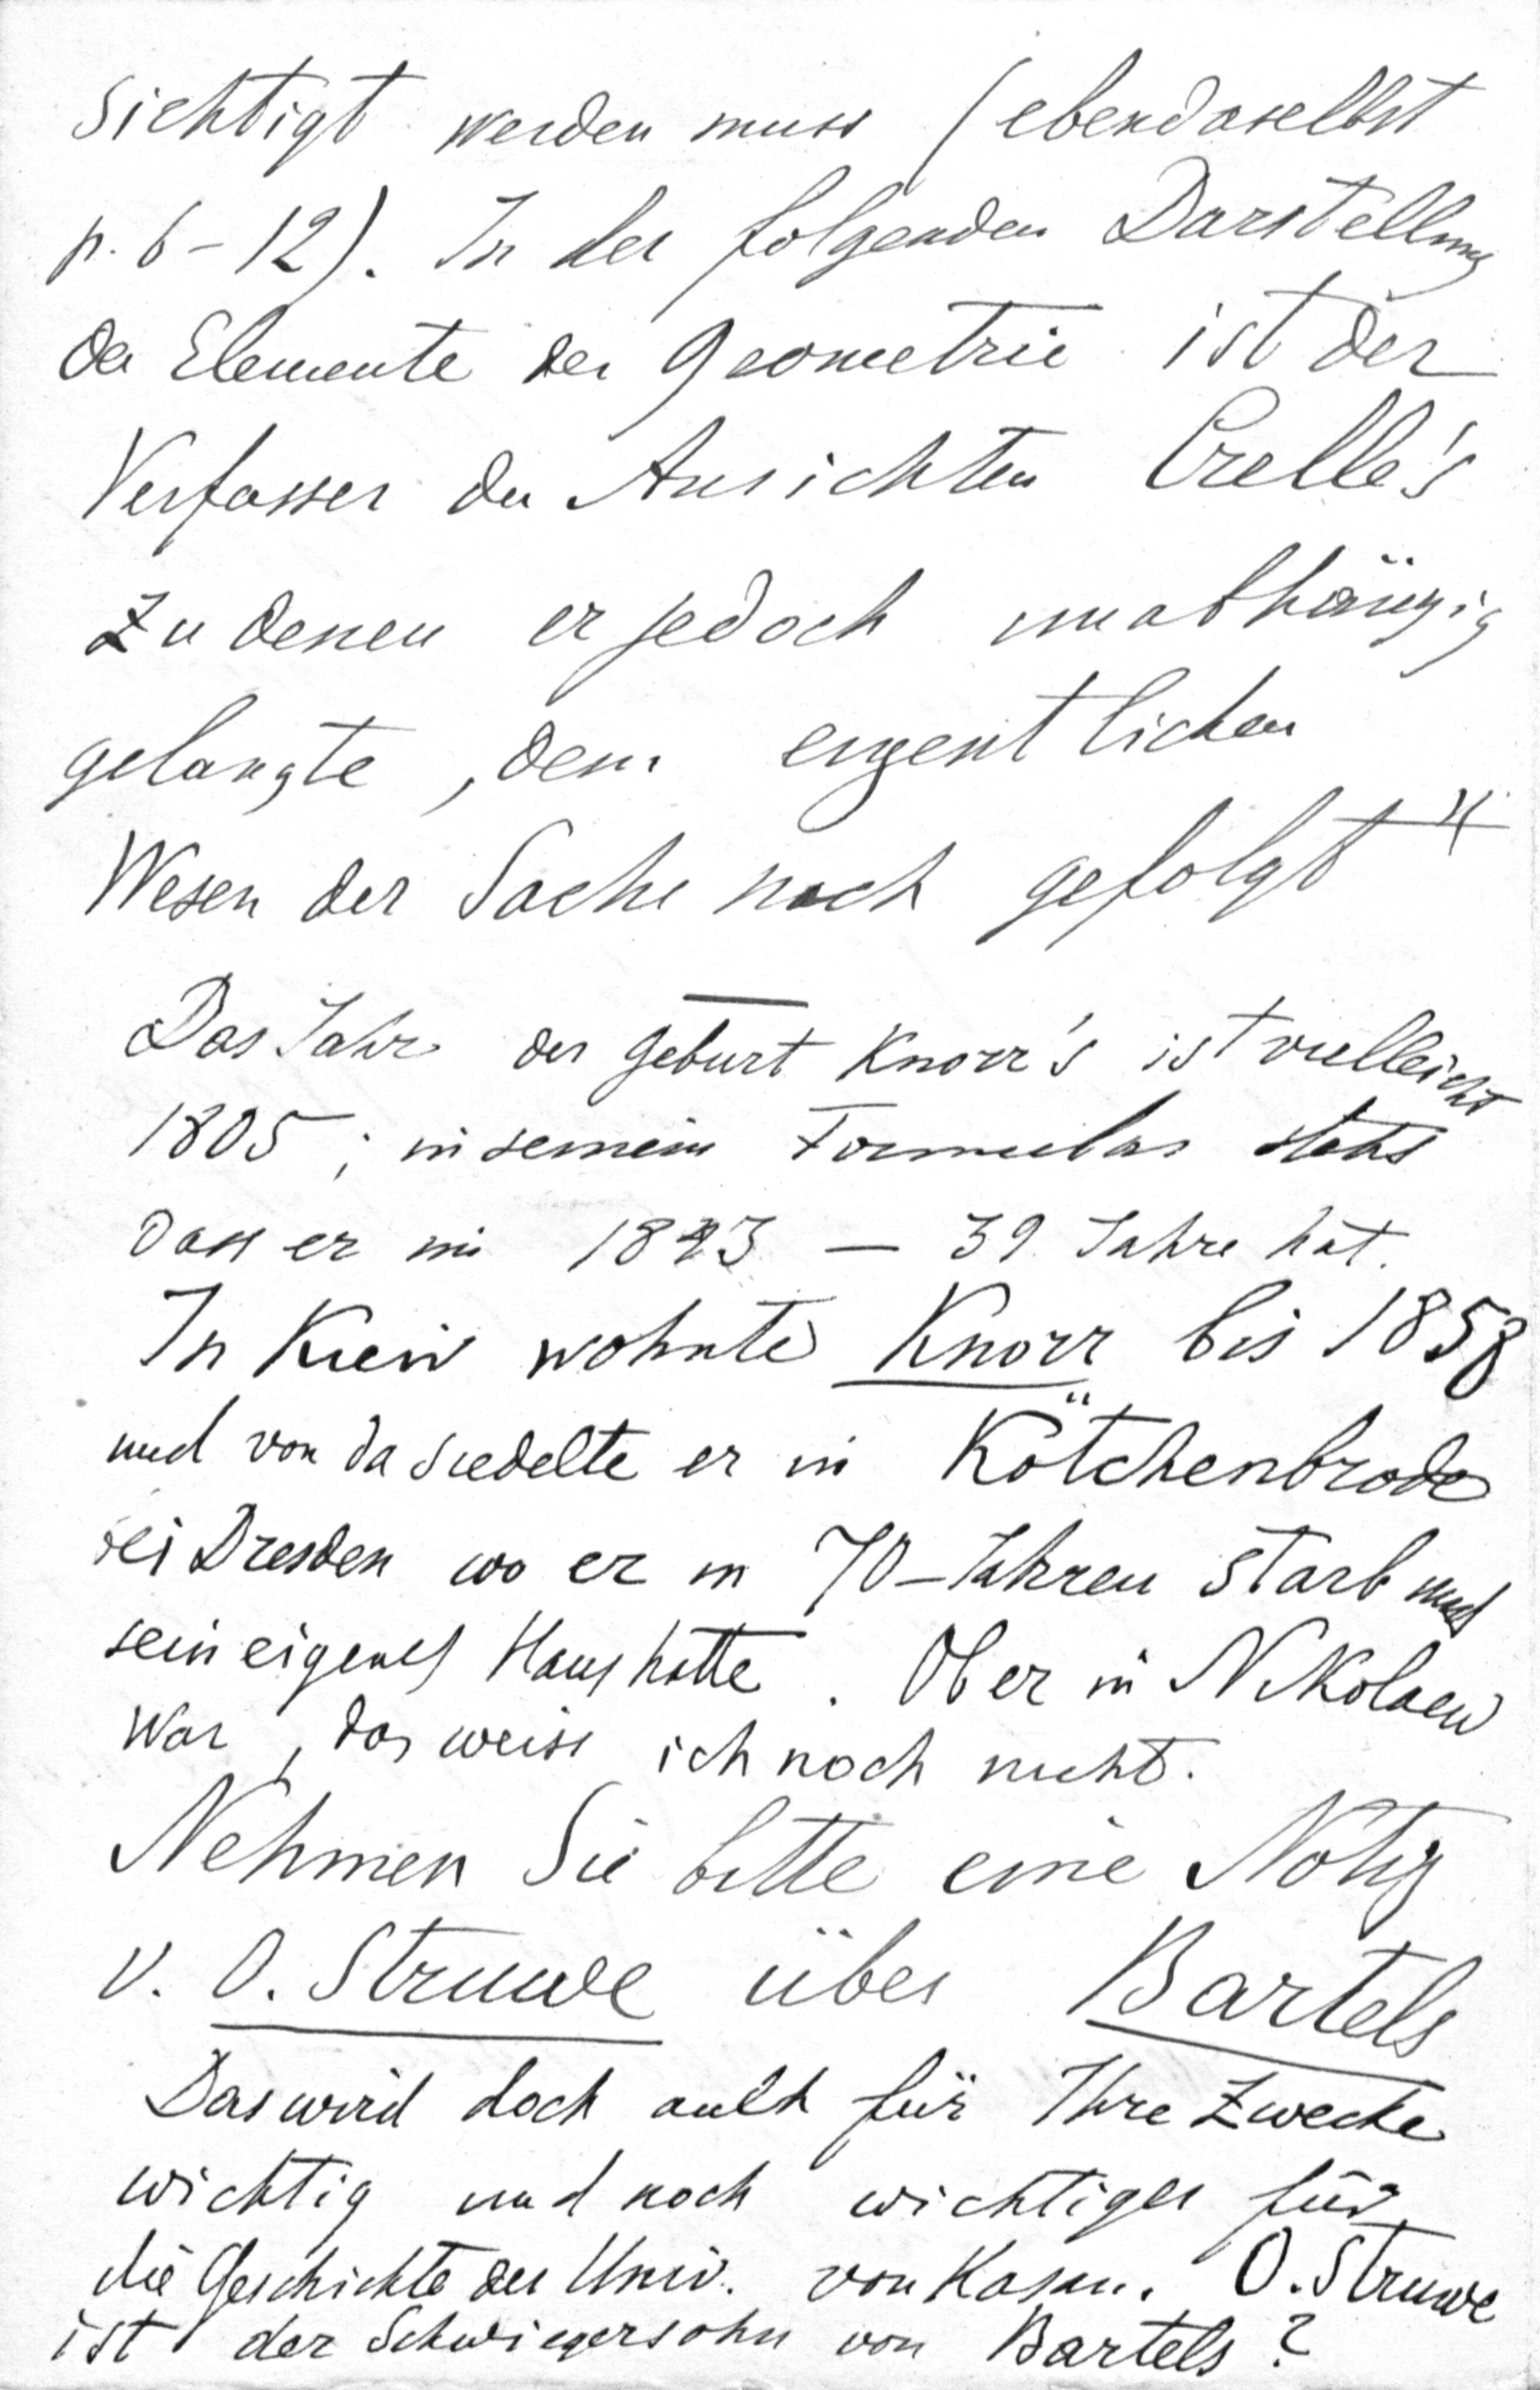 sichtigt werden muss (ebendaselbst
p. 6-12). In der folgenden Darstellung
der Elemente der Geometrie ist der
Verfasser den Ansichten Crelle's
zu denen er jedoch unabhängig
gelangte, dem eigentlichen
Wesen der Sache nach gefolgt "
Das Jahr der Geburt Knorr's ist vielleicht
1805; in seinem Formular steht
dass er im 1843 — 39 Jahre hat.
In Kiew wohnte Knorr bis 1858
und von da siedelte er in Kötchenbrode
bei Dresden wo er in 70-Jahren starb und
sein eigenes Haus hatte. Ob er in Nikolaew
war, das weiss ich noch nicht.
Nehmen Sie bitte eine Notiz
v. O. Struwe über Bartels
Das wird doch auch für Ihre Zwecke
wichtig und noch wichtiger für
die Geschichte der Univ. von Kasan. O. Struwe
ist der Schwiegersohn von Bartels?